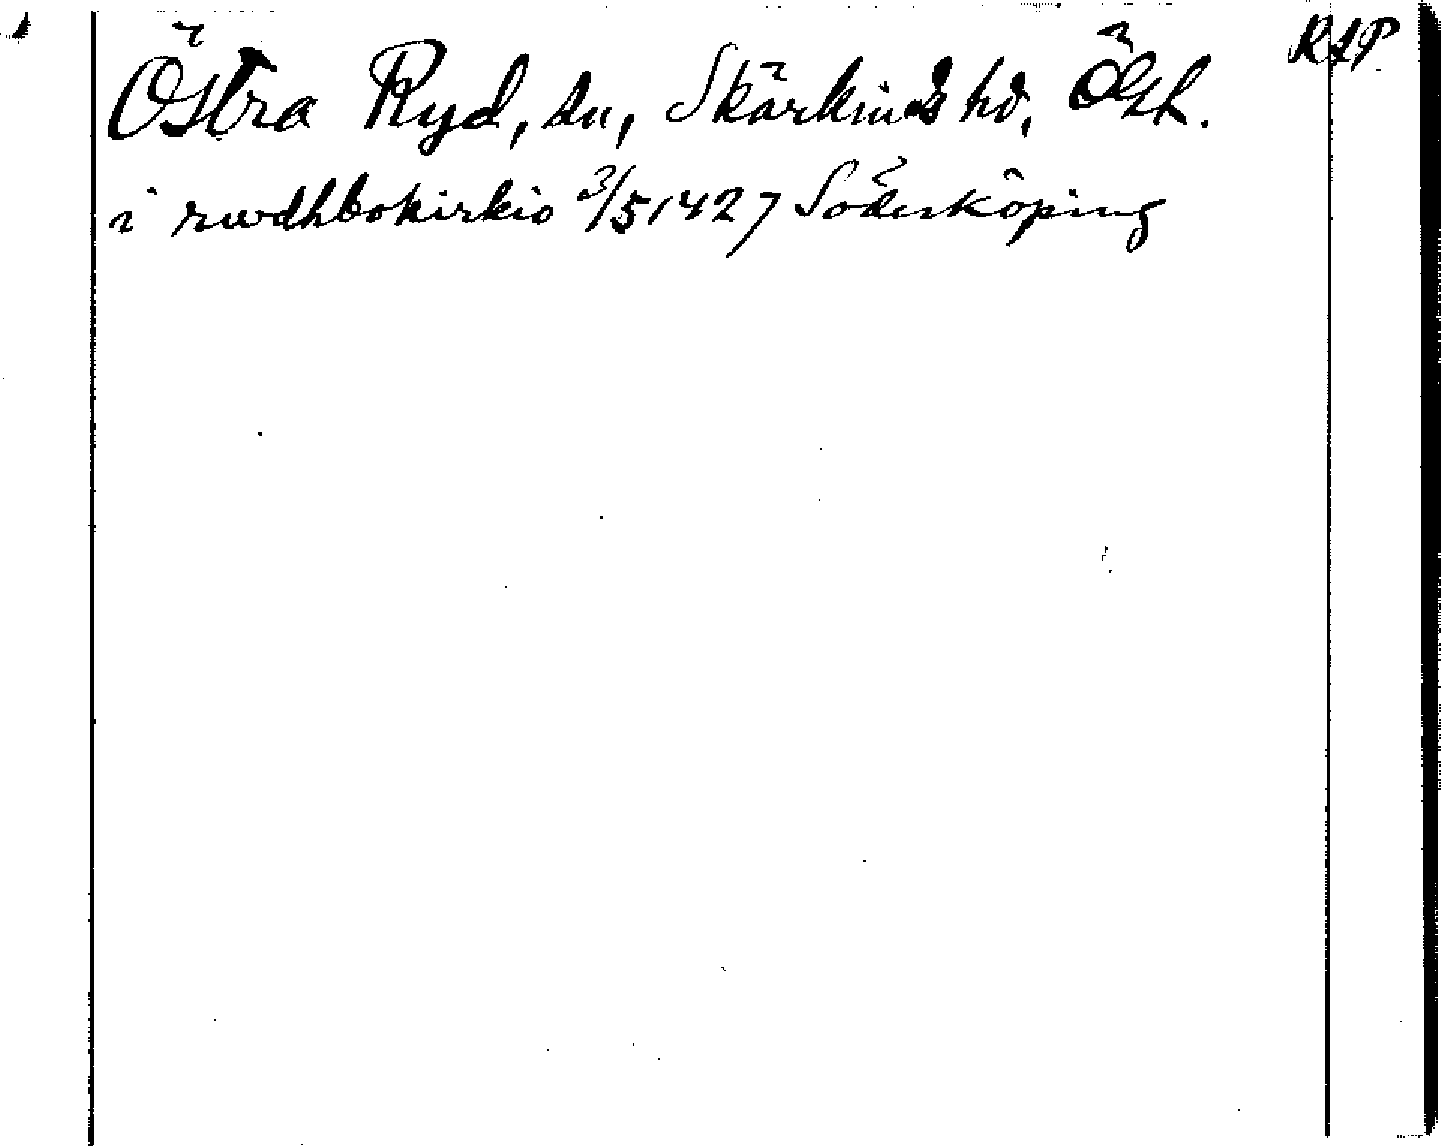 Östra Ryd, sn, Skärkinds hd, Ögl. RAP
i rwdhbokirkio 3/5 1427 Söderköping